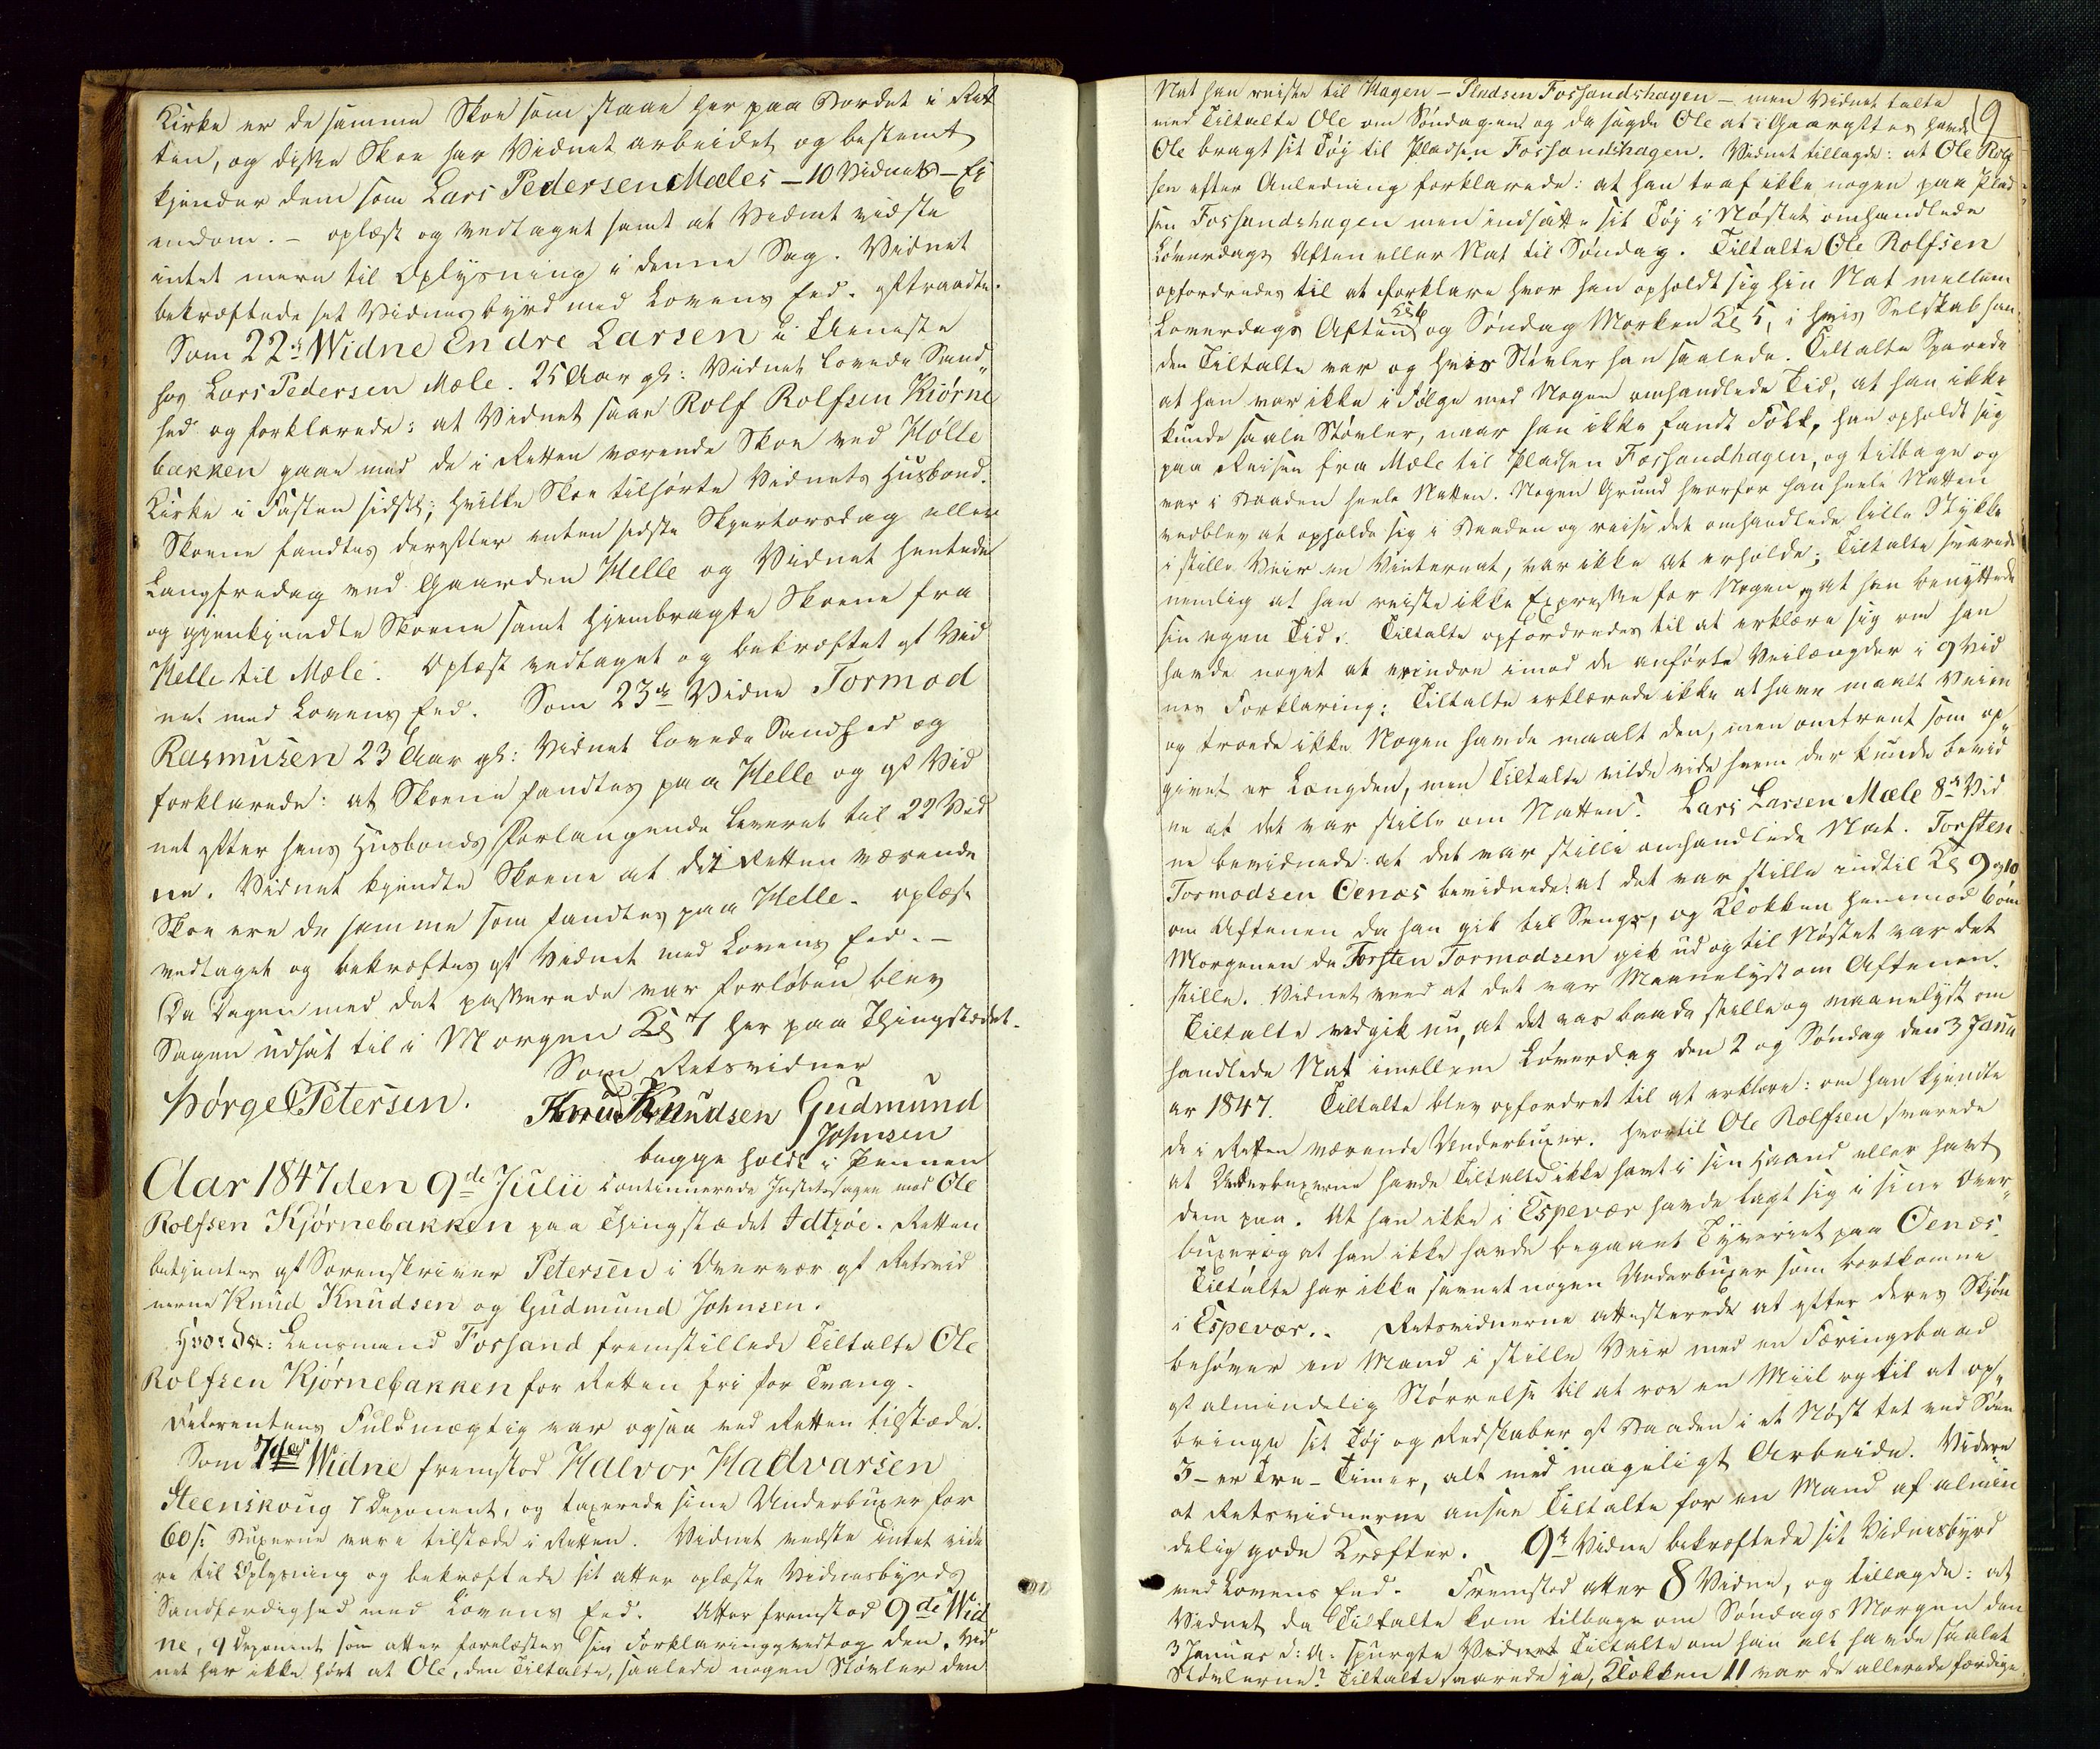 Kirke er de samme Skoe som staae her paa Bordet i Ret
ten, og diske Skoe har Vidnet arbeidet og bestemt
kjender dem som Lars Pedersen Mæles – 10 Vidnets – Ei
endom. – oplæst og vedtaget samt at Vidnet vidste
intet mere til Oplysning i denne Sag. Vidnet
bekræftede sit Vidnesbyrd med Lovens Eed. aftraadte.
Som 22de Widne Endre Larsen i Tieneste
hos Lars Pedersen Mæle. 25 Aar gl: Vidnet lovede Sand„
hed og forklarede: at Vidnet saae Rolf Rolfsen Kiørne
bakken gaae med de i Retten værende Skoe ved Holle
Kirke i Fasten sidst; hvilke Skoe tilhørte Vidnets Husbond.
Skoene fandtes derefter enten sidste Skjertorsdag eller
Langfredag ved Gaarden Helle og Vidnet hentede
og gjenkjendte Skoene samt hjembragte Skoene fra
Helle til Mæle. Oplæst vedtaget og bekræftet af Vid
net med Lovens Eed. Som 23de Vidne Tormod
Rasmusen 23 Aar gl: Vidnet lovede Sandhed og
forklarede: at Skoene fandtes paa Helle og af Vid
net efter hans Husbonds Forlangende leveret til 22 Vid
ne. Vidnet kjendte Skoene at de i Retten værende
Skoe ere de samme som fandtes paa Helle. oplæst
vedtaget og bekræftes af Vidnet med Lovens Eed. –
Da Dagen med det passerede var forløben blev
Sagen udsat til i Morgen Kl 7 her paa Thingstædet.
Som Retsvidner
Børge C Petersen. Knud Knudsen Gudmund
Johnsen
begge holdt i Pennen
Aar 1847 den 9de Julii continuerede Justitssagen mod Ole
Rolfsen Kjørnebakken paa Thingstædet Idtzøe. Retten
betjentes af Sorenskriver Petersen i Overvær af Retsvid
nerne Knud Knudsen og Gudmund Johnsen.
Hvorda: Lensmand Forsand fremstillede Tiltalte Ole
Rolfsen Kjørnebakken for Retten fri for Tvang.
Referentens Fuldmægtig var ogsaa ved Retten tilstæde.
Som 7de Widne fremstod Halvor Hadvarsen
Steenskoug 7 Deponent, og taxerede sine Underbuxer for
60 s: Buxerne vare tilstæde i Retten. Vidnet vedste intet vide
re til Oplysning og bekræftede sit atter oplæste Vidnesbyrds
Sandfærdighed med Lovens Eed. Atter fremstod 9de Wid
ne, 9 Deponent som atter forelæstes sin Forklaring vedtog den. Vid
net har ikke hørt at Ole, den Tiltalte, saalede nogen Støvler den
9
Nat han reiste til Hagen – Pladsen Forsandshagen – men Vidnet talte
med Tiltalte Ole om Søndagen og da sagde Ole at i Gaaraftes havde
Ole bragt sit Tøj til Pladsen Forsandshagen. Vidnet tillagde: at Ole Rolf
sen efter Anledning forklarede: at han traf ikke nogen paa Plad
sen Forsandshagen men indsatte sit Tøj i Nøstet omhandlede
Løverdags Aften eller Nat til Søndag. Tiltalte Ole Rolfsen
opfordredes til at forklare hvor han opholdt sig hin Nat mellem
Løverdags Aften Kl 6 og Søndag Morken Kl 5, i hvis Selskab han
den Tiltalte var og hvis Støvler han saalede. Tiltalte Svarede
at han var ikke i Følge med Nogen omhandlede Tid, at han ikke
kunde saale Støvler, naar han ikke fandt Folk, han opholdt sig
paa Reisen fra Mæle til Pladsen Forsandhagen, og tilbage og
var i Baaden heele Natten. Nogen Grund hvorfor han heele Natten
vedblev at opholde sig i Baaden og reise det omhandlede lille Stykke
i stille Veir en Vinternat, var ikke at erholde; Tiltalte svarede
nemlig at han reiste ikke Expresse for Nogen, at han benyttede
sin egen Tid. Tiltalte opfordredes til at erklære sig om han
havde noget at erindre imod de anførte Veilængder i 9 Vid
nes Forklaring: Tiltalte erklærede ikke at have maalt Veien
og troede ikke Nogen havde maalt den, men omtrent som op„
givet er Længden, men Tiltalte vilde vide hvem der kunde bevid
ne at det var stille om Natten? Lars Larsen Mæle 8de Vid
ne bevidnede at det var stille omhandlede Nat. Torsten
Tormodsen Oenæs bevidnede: at det var stille indtil Kl 9 a 10
om Aftenen da han gik til Sengs, og Klokken henimod 6 om
Morgenen da Torsten Tormodsen gik ud og til Nøstet var det
stille. Vidnet veed at det var Maanelyst om Aftenen.
Tiltalte vedgik nu, at det var baade stille og maanelyst om
handlede Nat imellem Løverdag den 2 og Søndag den 3 Janu
ar 1847. Tiltalte blev opfordret til at erklære: om han kjendte
de i Retten værende Underbuxer. hvortil Ole Rolfsen svarede
at Underbuxerne havde Tiltalte ikke havt i sin Haand eller havt
dem paa. At han ikke i Espevær havde lagt sig i sine Over„
buxer og at han ikke havde begaaet Tyveriet paa Oenæs.
Tiltalte har ikke savnet nogen Underbuxer som bortkomne
i Espevær. Retsvidnerne attesterede at efter deres Skjøn
behøver en Mand i stille Veir med en Færingsbaad
af almindelig Størrelse til at roe en Miil og til at op„
bringe sit Tøj og Redskaber af Baaden i et Nøst tet ved Søen
3 – er Tre – Timer, alt med mageligt Arbeide. Videre
at Retsvidnerne ansee Tiltalte for en Mand af almin
delig gode Kræfter. 9de Vidne bekræftede sit Vidnesbyrd
ved Lovens Eed. Fremstod atter 8 Vidne, og tillagde: at
Vidnet da Tiltalte kom tilbage om Søndags Morgen den
3 Januar d: A: spurgte Vidnet Tiltalte om han alt havde saalet
Støvlerne? Tiltalte svarede ja, Klokken 11 var de allerede færdige